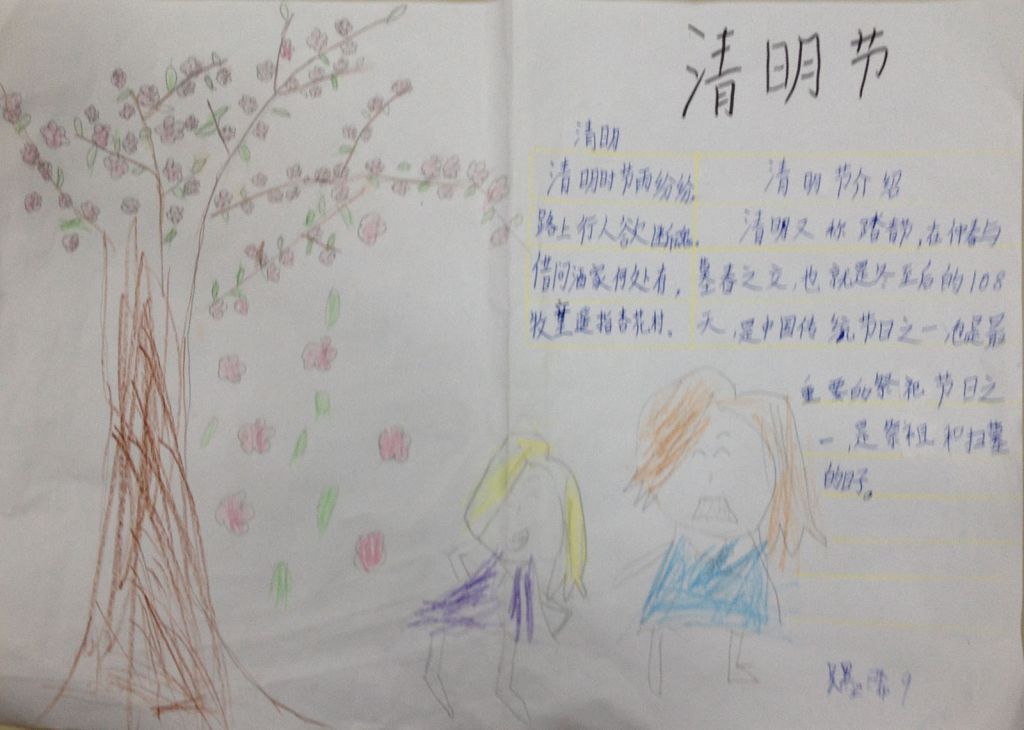 清明节
清明
清明时节雨纷纷,
路上行人欲断魂。
借问酒家何处有,
牧童遥指杏花村。
清明节介绍
清明又称踏青节,在仲春与
墓春之交,也就是冬至后的108
天,是中国传统节日之一,也是最
重要的祭祀节日之
一,是祭祖和扫墓
的日子。
9